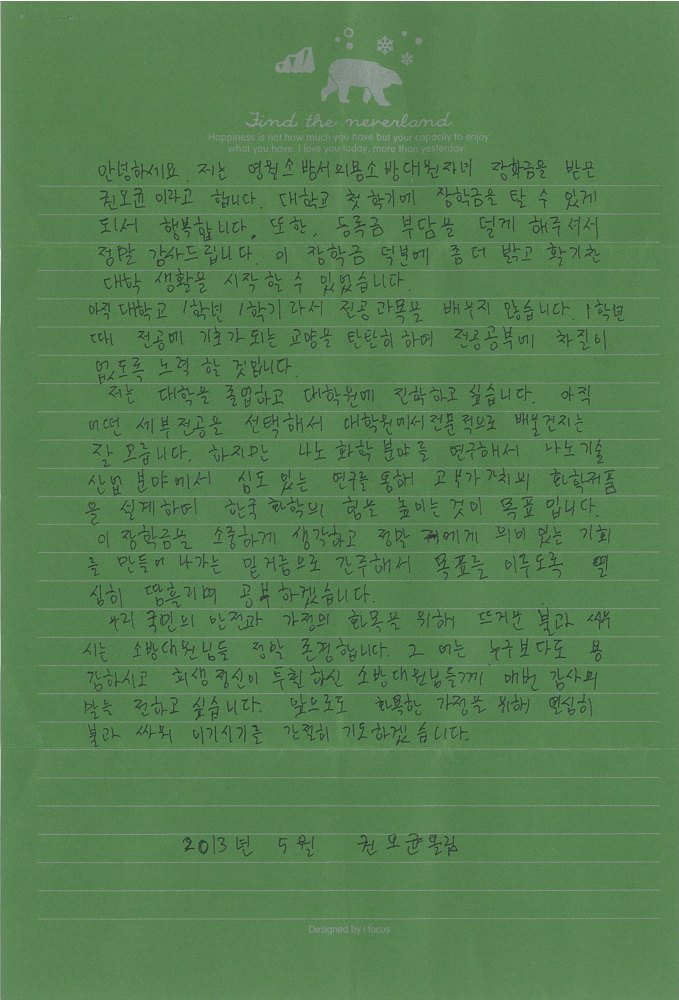 Find the neverland
Happiness is not how much you have but your capacity to enjoy
what you have. I love you today, more than yesterday.
안녕하세요. 저는 영월소방서의용소방대원자녀 장학금을 받은
권오균이라고 합니다. 대학교 첫 학기에 장학금을 탈 수 있게
되서 행복합니다. 또한, 등록금 부담을 덜게 해주셔서
정말 감사드립니다. 이 장학금 덕분에 좀 더 밝고 활기찬
대학 생활을 시작 할 수 있었습니다.
아직 대학교 1학년 1학기라서 전공과목을 배우지 않습니다. 1학년
때 전공에 기초가 되는 교양을 탄탄히 하며 전공공부에 차질이
없도록 노력 할 것입니다.
저는 대학을 졸업하고 대학원에 진학하고 싶습니다. 아직
어떤 세부전공을 선택해서 대학원에서 전문적으로 배울건지는
잘 모릅니다. 하지만 나노 화학 분야를 연구해서 나노기술
산업 분야에서 심도 있는 연구를 통해 고부가가치의 화학제품
을 설계하며 한국 화학의 힘을 높이는 것이 목표 입니다.
이 장학금을 소중하게 생각하고 정말 저에게 의미 있는 기회
를 만들어 나가는 밑거름으로 간주해서 목표를 이루도록 열
심히 땀흘리며 공부하겠습니다.
우리 국민의 안전과 가정의 화목을 위하여 뜨거운 불과 싸우
시는 소방대원님들 정말 존경합니다. 그 어느 누구보다도 용
감하시고 희생정신이 투철하신 소방대원님들께 매번 감사의
말을 전하고 싶습니다. 앞으로도 화목한 가정을 위해 열심히
불과 싸워 이기시기를 간절히 기도하겠습니다.
2013년 5월 권오균올림
Designed by i focus